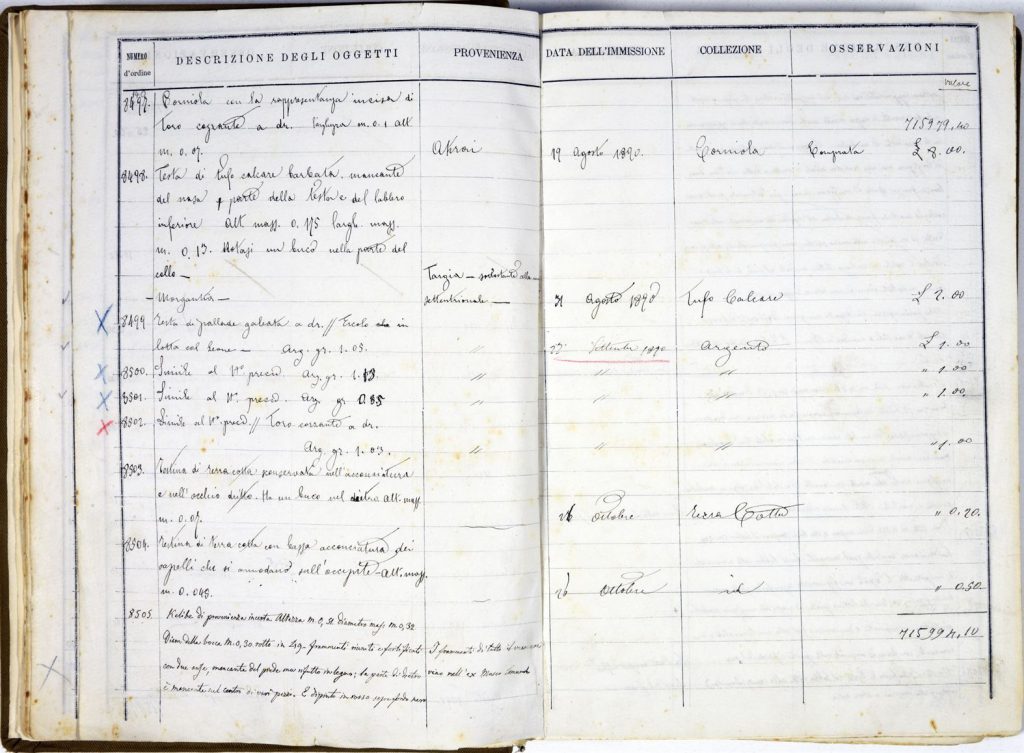 NUMERO d'ordine
DESCRIZIONE DEGLI OGGETTI
PROVENIENZA
DATA DELL'IMMISSIONE
COLLEZIONE
OSSERVAZIONI
Valore
715979,40
8497. Corniola con la rappresentanza incisa di
Toro cozzante a dr. m. 0.1 Alt
m. 0.07.
Akrai
19 Agosto 1890.
Corniola
Comprata
£ 8.00.
8498. Testa di tufo calcare barbata, mancante
del naso e parte della testa e del labbro
inferiore Alt mass. 0.175 largh. mass.
m. 0.13. Notasi un buco nella parte del
collo —
Targia —
settentrionale —
31 Agosto 1890
Tufo Calcare
£ 2.00
— Morgantia —
8499 Testa di pallade galeata a dr. // Ercole che in
lotta col leone — Arg. gr. 1.05.
"
22 Settembre 1890
Argento
£ 1.00
8500. Simile al N° preced. Arg. gr. 1.13
"
"
"
" 1.00
8501. Simile al N° preced. Arg. gr. 0.85
"
"
"
" 1.00
8502. Simile al N° preced // Toro cozzante a dr.
Arg. gr. 1.03.
"
"
"
" 1.00
8503. Testina di terra cotta conservata nell'acconciatura
e nell'occhio destro. Ha un buco nel dietro. Alt. mass
m. 0.07.
26 Ottobre
Terra Cotta
" 0.20
8504. Testina di terra cotta con bassa acconciatura dei
capelli che si annodano sull'occipite — Alt. mass.
m. 0.043.
26 Ottobre
id
" 0.50
715994,10
8505. Kelebe di provenienza incerta Altezza m. 0,32 diametro mass m. 0,32
Diam della bocca m. 0,30 rotto in 49 frammenti riuniti e fortificati
con due mancante del piede ma rifatto in legno; la parte di dietro
è mancante nel centro di vari pezzi. È dipinto in rosso sopra fondo nero
I frammenti di tutto
nell'ex Museo